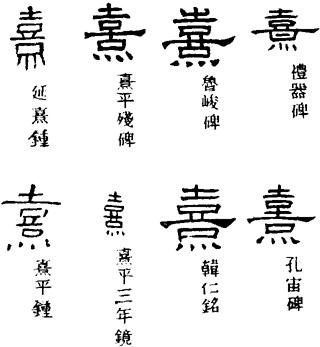 熹
禮器碑
熹
魯峻碑
熹
熹平殘碑
熹
延熹鍾
熹
孔宙碑
熹
韓仁銘
熹
熹平三年鏡
熹
熹平鍾